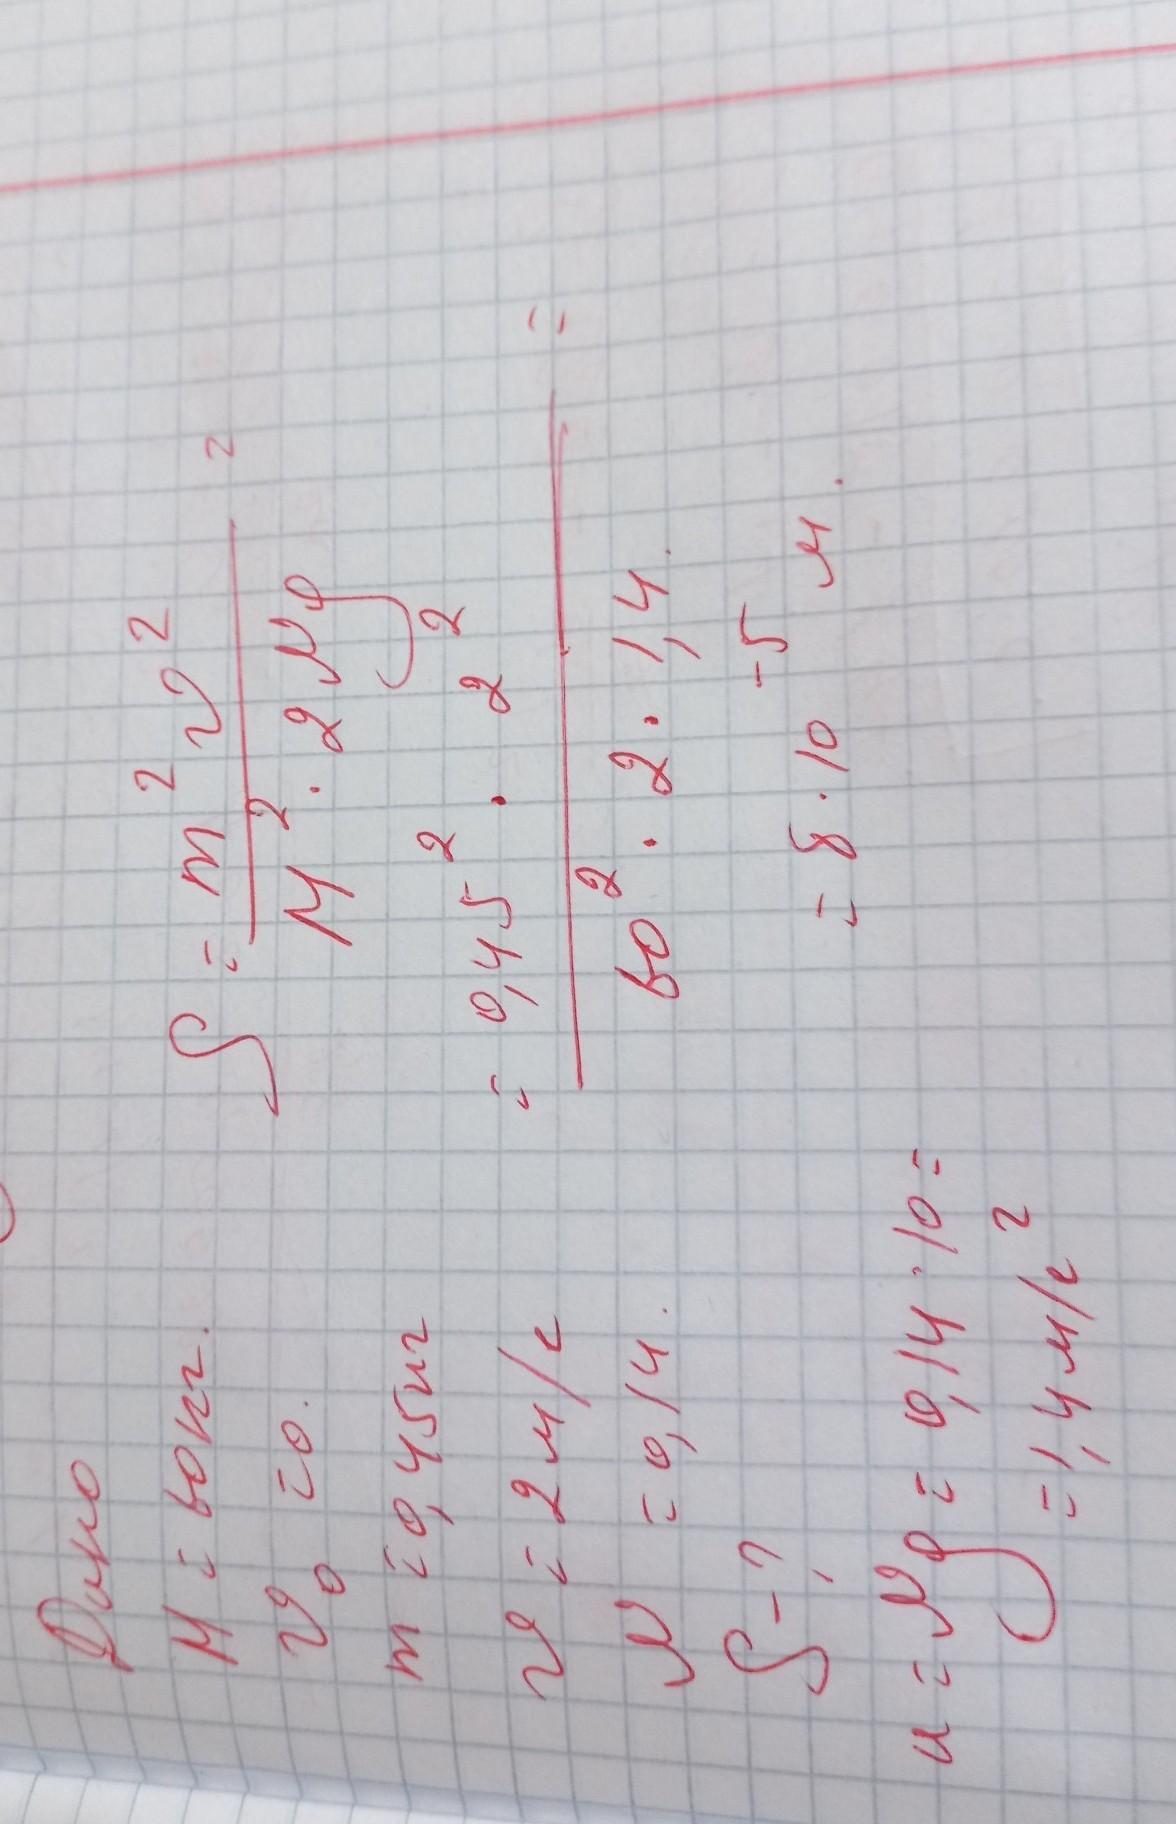 Дано
M = 60кг.
v₀ = 0.
m = 0,45кг
v = 2м/с
μ = 0,14.
S - ?
a = μg = 0,14 · 10 =
= 1,4м/с²
S = m² v² / M² · 2μg =
= 0,45² · 2² / 60² · 2 · 1,4 =
= 8 · 10⁻⁵ м.